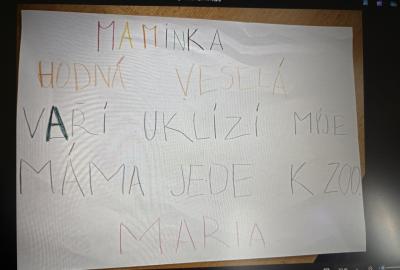 MAMINKA
HODNÁ VESELÁ
VAŘÍ UKLÍZÍ MYJE
MÁMA JEDE K ZOO
MARIA